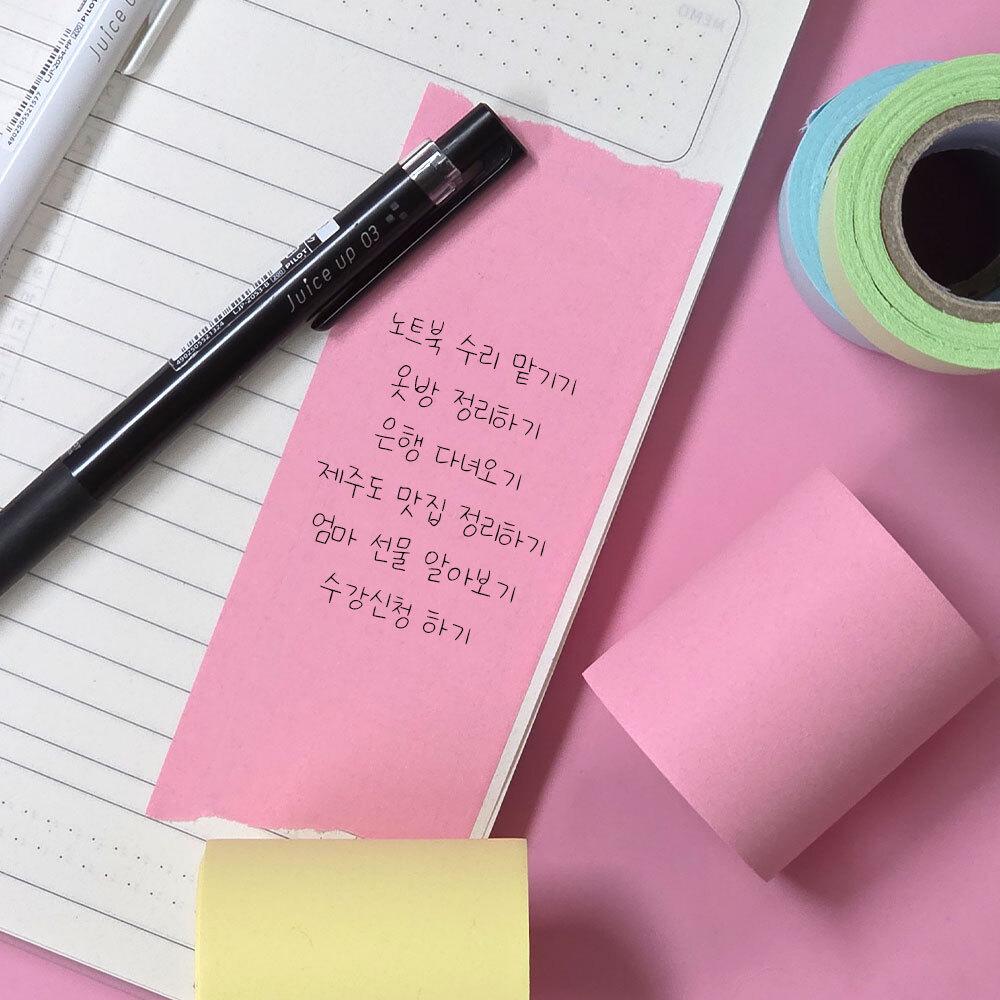 노트북 수리 맡기기
옷방 정리하기
은행 다녀오기
제주도 맛집 정리하기
엄마 선물 알아보기
수강신청 하기
Juice up 03
PILOT
LJP-20S3-B
4902505521324
Juice u
PILOT
LJP-20S4-PP
4902505521577
MEMO